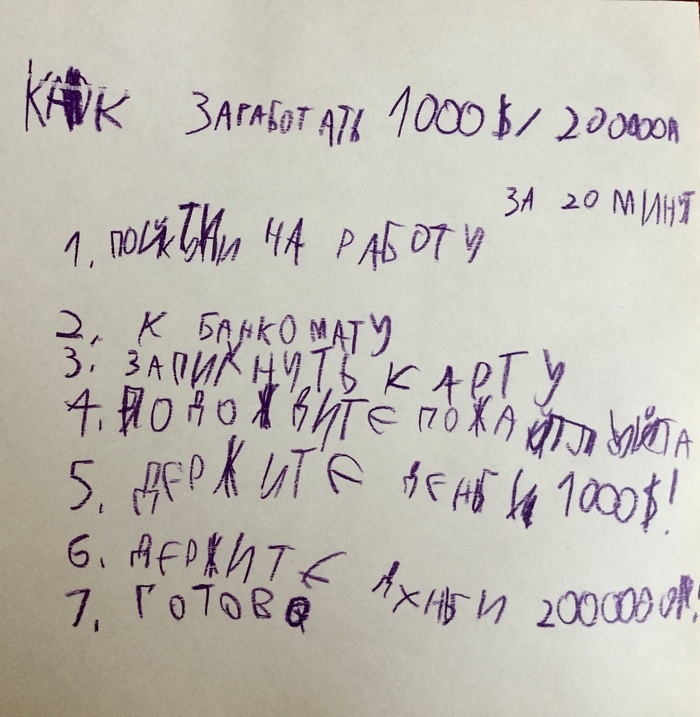 КАК ЗАРАБОТАТЬ 1000$/ 200000Л
ЗА 20 МИНУТ
1. НА РАБОТУ
2. К БАНКОМАТУ
3. ЗАПИХНУТЬ КАРТУ
4. ПОДОЖДИТЕ
5. ДЕРЖИТЕ ДЕНЬГИ 1000$!
6. ДЕРЖИТЕ ДХНЬГИ
7. ГОТОВО